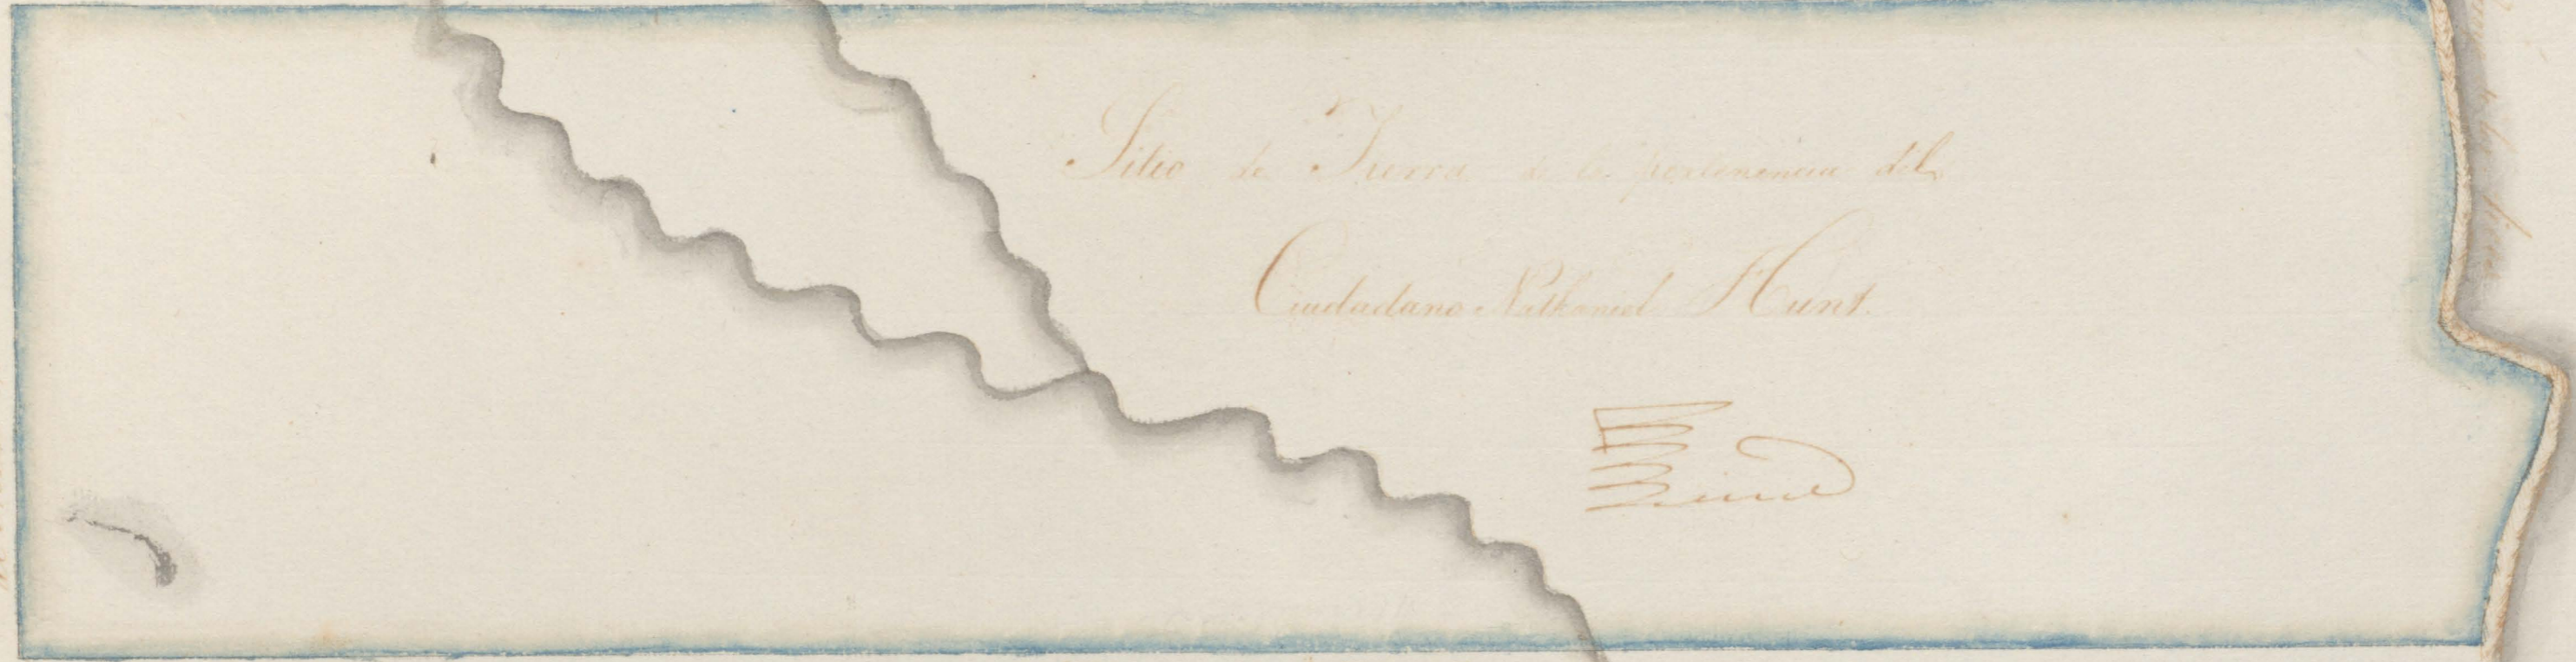 Sitio de Tierra de la pertenencia del
Ciudadano Nathaniel Hunt.